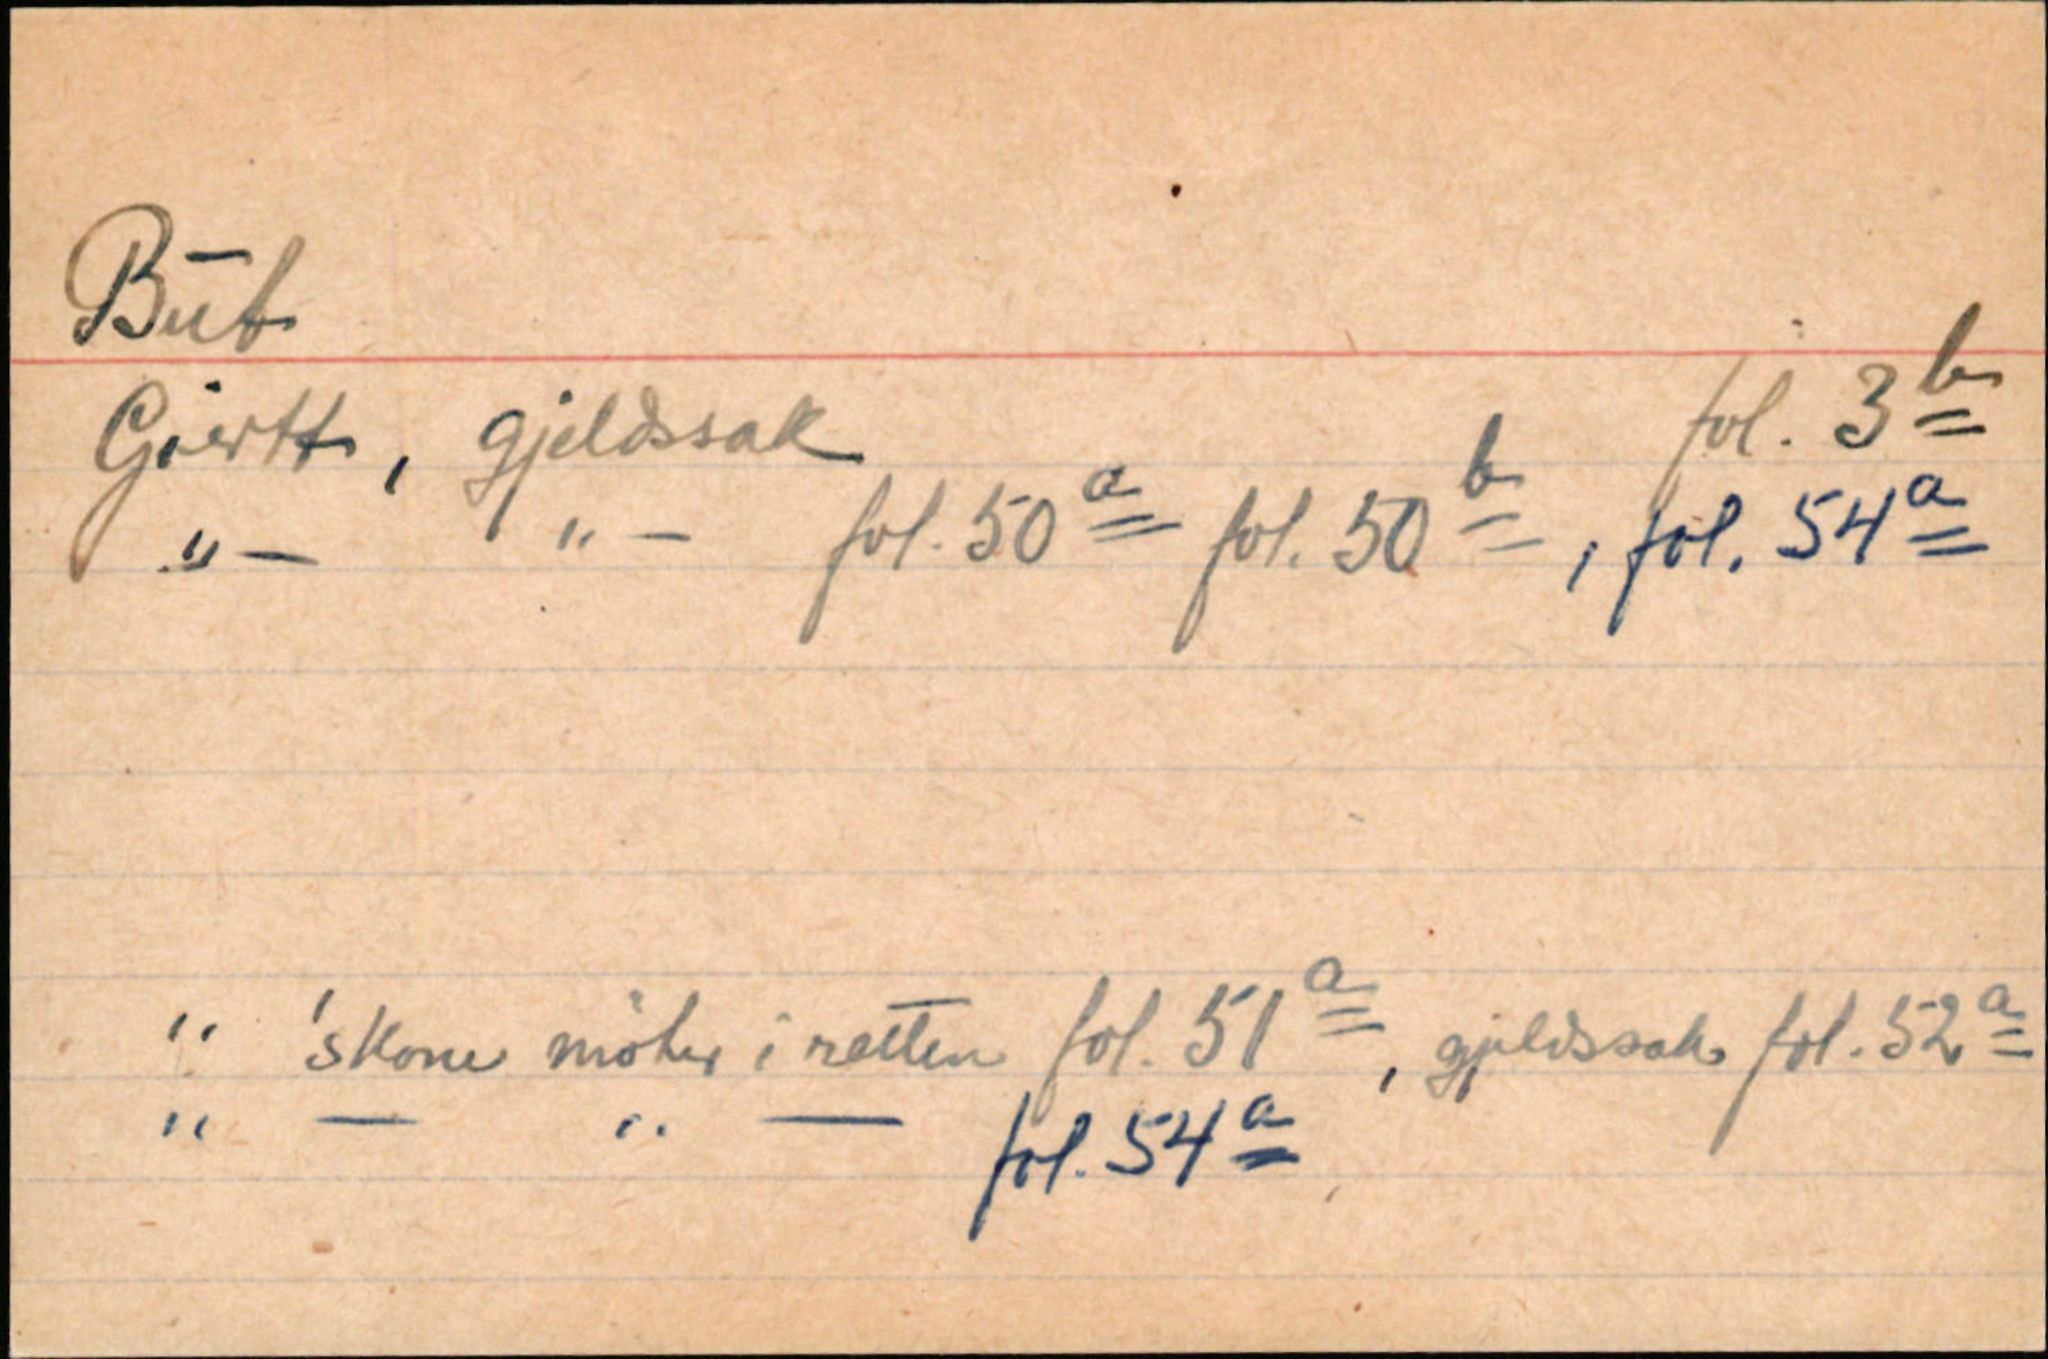 Büt
Giertt, gjeldssak fol. 3b
"— "— fol. 50a fol. 50b, fol. 54a
" 'skone möter i retten fol. 51a, gjeldssak fol. 52a
" — " — fol. 54a